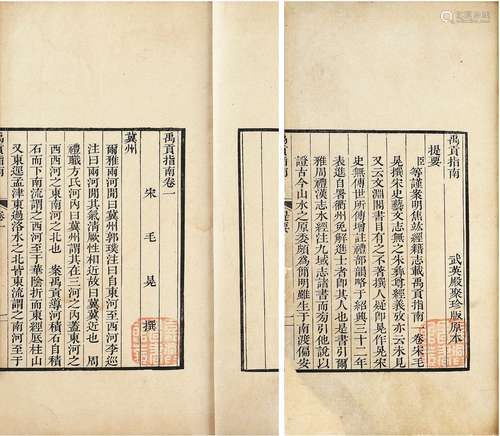 禹貢指南
武英殿聚珍版原本
提要
臣等謹案明焦竑經籍志載禹貢指南一卷宋毛
晃撰宋史藝文志無之朱彝尊經義攷亦云未見
又云文淵閣書目有之不著撰人疑即晃作晃宋
史無傳世所傳增註禮部韻略於紹興三十二年
表進自署衢州免解進士者即其人也是書引爾
雅周禮漢志水經注九域志諸書而旁引他說以
證古今山水之原委頗為簡明雖生于南渡偏安
禹貢指南
提要
禹貢指南卷一
宋 毛 晃 撰
冀州
爾雅兩河間曰冀州郭璞注曰自東河至西河李巡
注曰兩河間其氣清厥性相近故曰冀冀近也 周
禮職方氏河內曰冀州謂其在三河之內蓋東河之
西西河之東南河之北也 案禹貢導河積石自積
石而下南流謂之西河至于華陰折而東經底柱山
又東逕孟津東過洛水之北皆東流謂之南河至于
禹貢指南
卷一